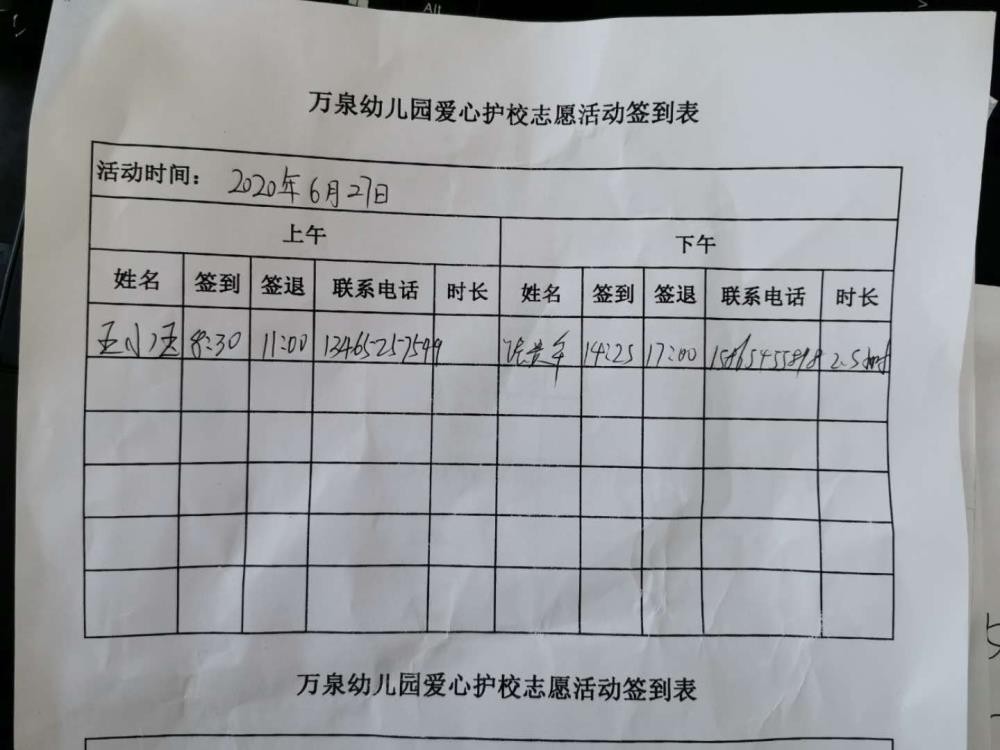 万泉幼儿园爱心护校志愿活动签到表
活动时间： 2020年6月27日
上午 下午
姓名 签到 签退 联系电话 时长 姓名 签到 签退 联系电话 时长
8:30 11:00 13465257549 14:25 17:00 2.5小时
万泉幼儿园爱心护校志愿活动签到表